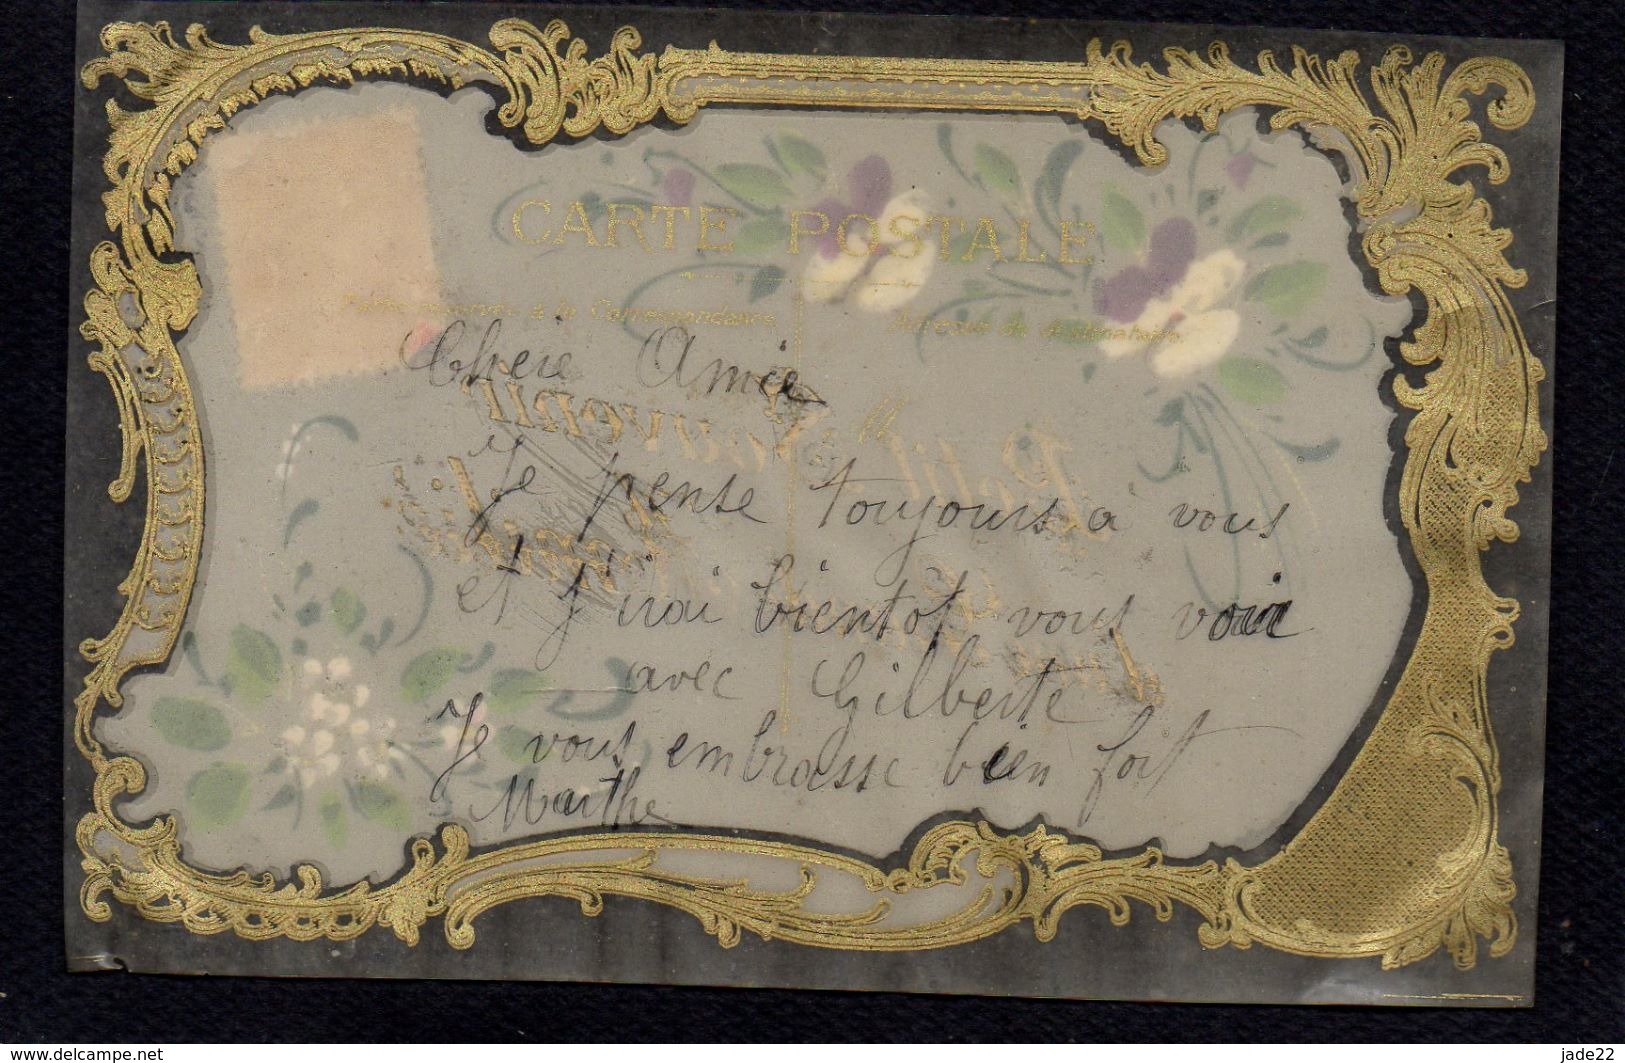 CARTE POSTALE
Partie réservée à la Correspondance
Adresse du destinataire
Chere Amie
Je pense toujours a vous
et j'irai bientot vous voir
avec Gilberte
Je vous embrasse bien fort
Marthe
Petit Souvenir
www.delcampe.net
jade22